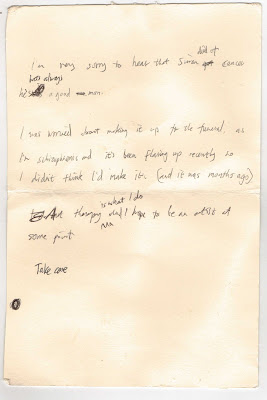 died of
I'm very sorry to hear that Simon got cancer
has always
he's a good man.
I was worried about making it up to the funeral, as
I'm schizophrenic and it's been flaring up recently so
I didn't think I'd make it. (and it was months ago)
is what I do
Art therapy and I hope to be an artist at
some point.
Take care